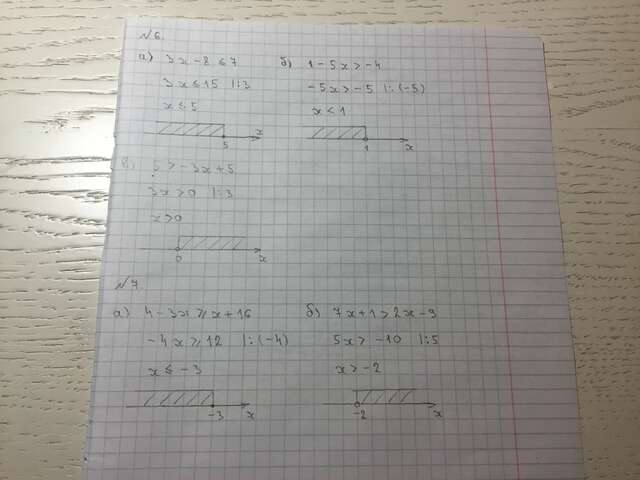 №6
а) 3x - 8 ≤ 7
3x ≤ 15 |:3
x ≤ 5
5 x
б) 1 - 5x > -4
-5x > -5 |:(-5)
x < 1
1 x
в) 5 > -3x + 5
3x > 0 |:3
x > 0
0 x
№7
а) 4 - 3x ≥ x + 16
-4x ≥ 12 |:(-4)
x ≤ -3
-3 x
б) 7x + 1 > 2x - 9
5x > -10 |:5
x > -2
-2 x